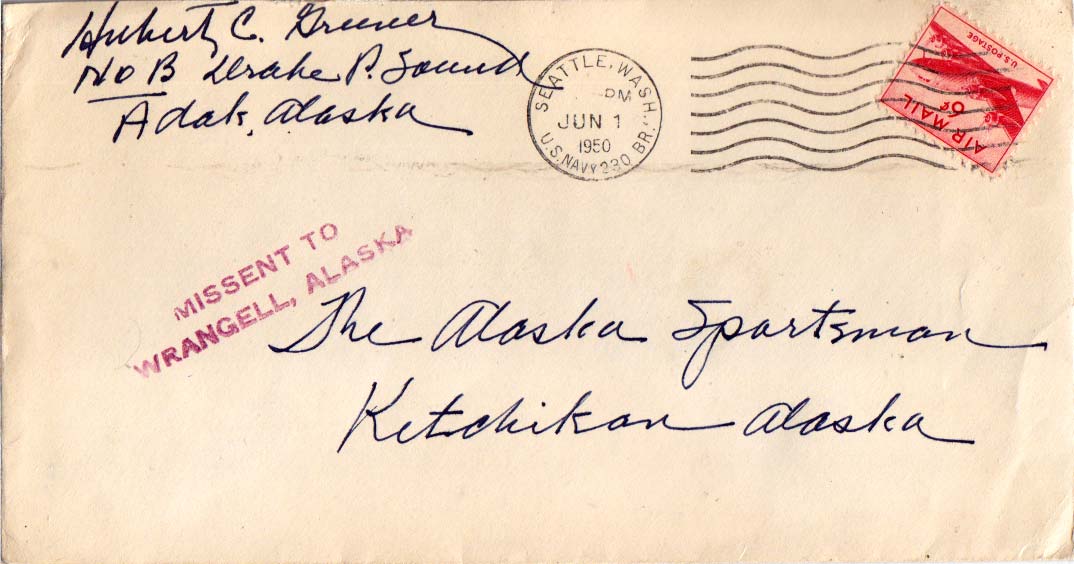 Hubert C. Gruner
N O B Drake P. Sound
Adak, Alaska
SEATTLE, WASH.
PM
JUN 1
1950
U.S. NAVY 230 BR.
U.S. POSTAGE
6¢
AIR MAIL
MISSENT TO
WRANGELL, ALASKA
The Alaska Sportsman
Ketchikan Alaska